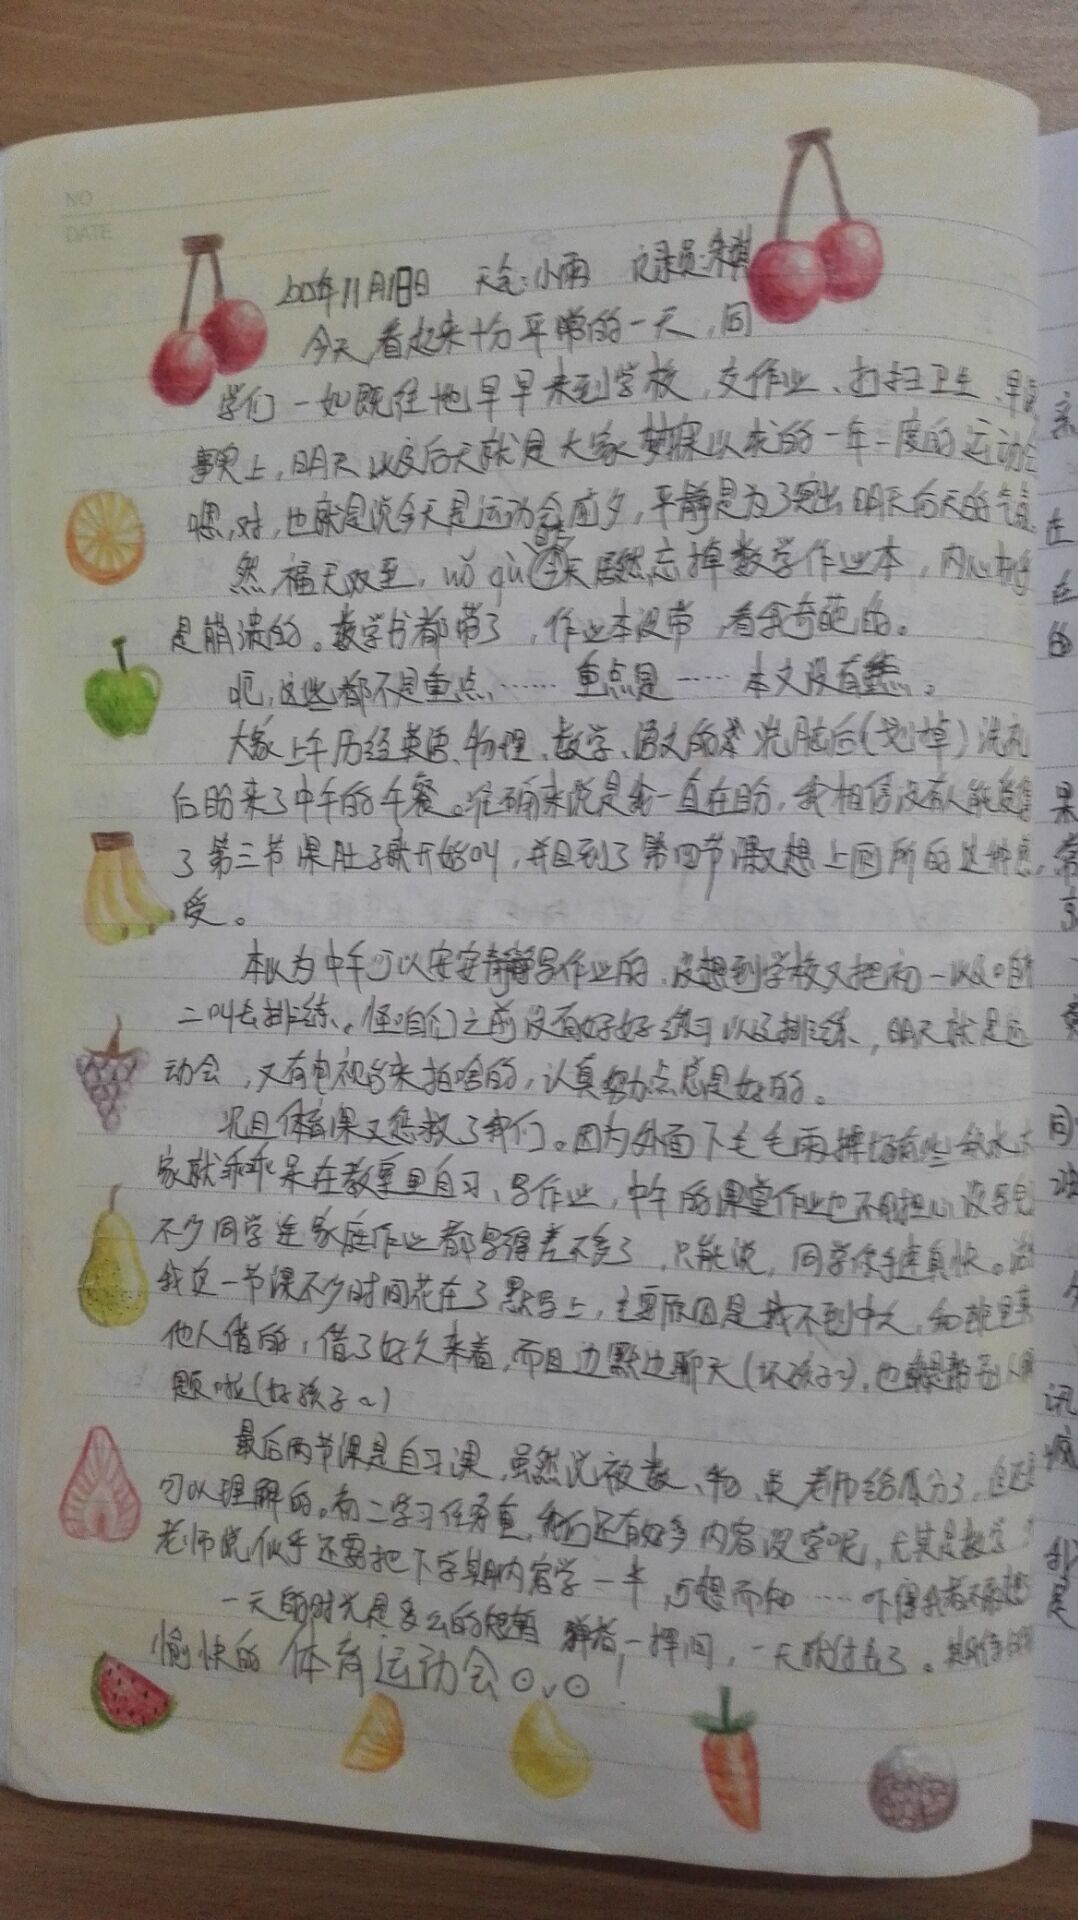 NO
DATE
2015年11月18日 天气:小雨 记录员:朱
今天,看起来十分平常的一天,同
学们一如既往地早早来到学校,交作业、打扫卫生、早
事实上,明天以及后天就是大家梦寐以求的一年一度的运动会
嗯,对,也就是说今天是运动会前夕,平静是为了突出明天后天的气氛
然,福无双至,wǒ qù今天居然忘掉数学作业本,内心
是崩溃的。数学书都带了,作业本没带,看我奇葩的。
呃,这些都不是重点……重点是……本文没有重点。
大家上午历经英语、物理、数学、语文的 洗脑后(划掉)洗礼
后盼来了中午的午餐。准确来说是我一直在盼,我相信没有人能
了第三节课肚子就开始叫,并且到了第四节课又想上厕所的这种感
受。
本以为中午可以安安静静写作业的,没想到学校又把初一以及咱
二叫去排练。怪咱们之前没有好好练习以及排练,明天就是运
动会,又有电视台来拍啥的,认真努力点总是好的。
况且体育课又拯救了我们。因为外面下毛毛雨操场有些积水大
家就乖乖呆在教室里自习、写作业,中午的课堂作业也不用担心没写完
不少同学连家庭作业都写得差不多了,只能说,同学你手速真快。
我这一节课不少时间花在了默写上,主要原因是我不到中人,和班里其
他人借的,借了好久来着,而且边默边聊天(坏孩子~),也就是帮别人
题啦(好孩子~)
最后两节课是自习课,虽然说被数、物、英老师给瓜分了,但还
可以理解的。初二学习任务重,我们还有好多内容没学呢,尤其是数学
老师说似乎还要把下学期内容学一半,可想而知……吓得我都不敢想
一天的时光是多么的短暂 弹指一挥间,一天就过去了。期待
愉快的体育运动会⊙v⊙!